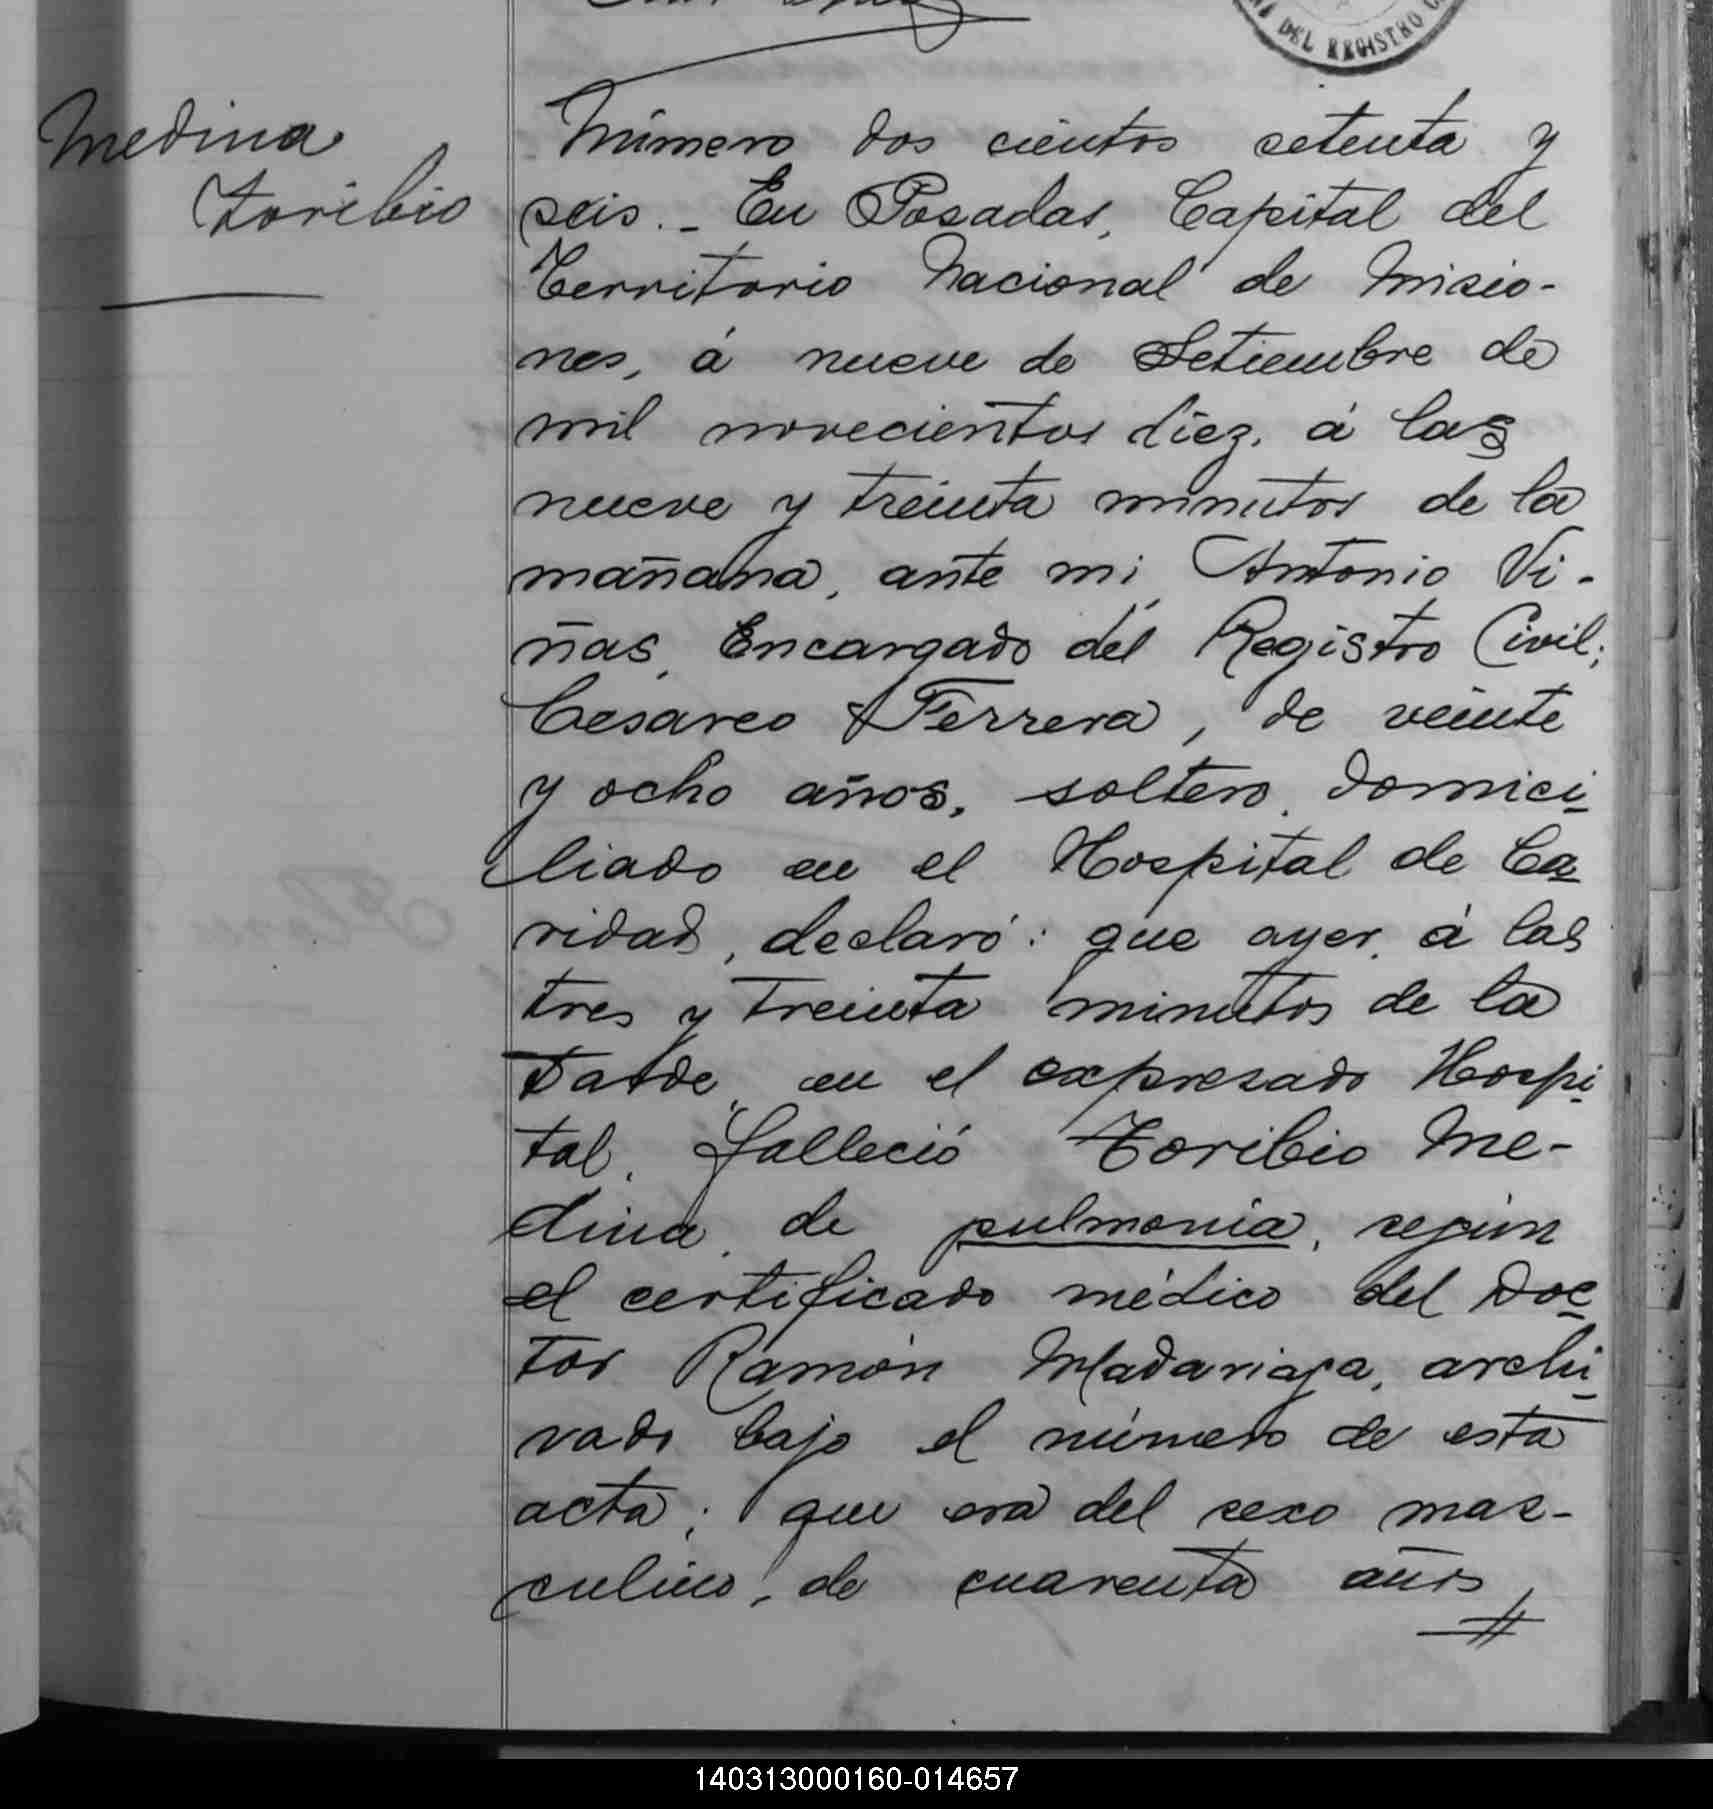 DEL REGISTRO
Medina
Toribio
Número dos cientos setenta y
seis._ En Posadas, Capital del
Territorio Nacional de Misio-
nes, á nueve de Setiembre de
mil novecientos diez, á las
nueve y treinta minutos de la
mañana, ante mi, Antonio Vi-
ñas, Encargado del Registro Civil;
Cesareo Ferrera, de veinte
y ocho años, soltero, domici-
liado en el Hospital de Ca-
ridad, declaró: que ayer, á las
tres y treinta minutos de la
tarde, en el expresado Hospi-
tal, falleció Toribio Me-
dina, de pulmonia, según
el certificado médico del Doc-
tor Ramón Madariaga, archi-
vado bajo el número de esta
acta; que era del sexo mas-
culino, de cuarenta años,
140313000160-014657